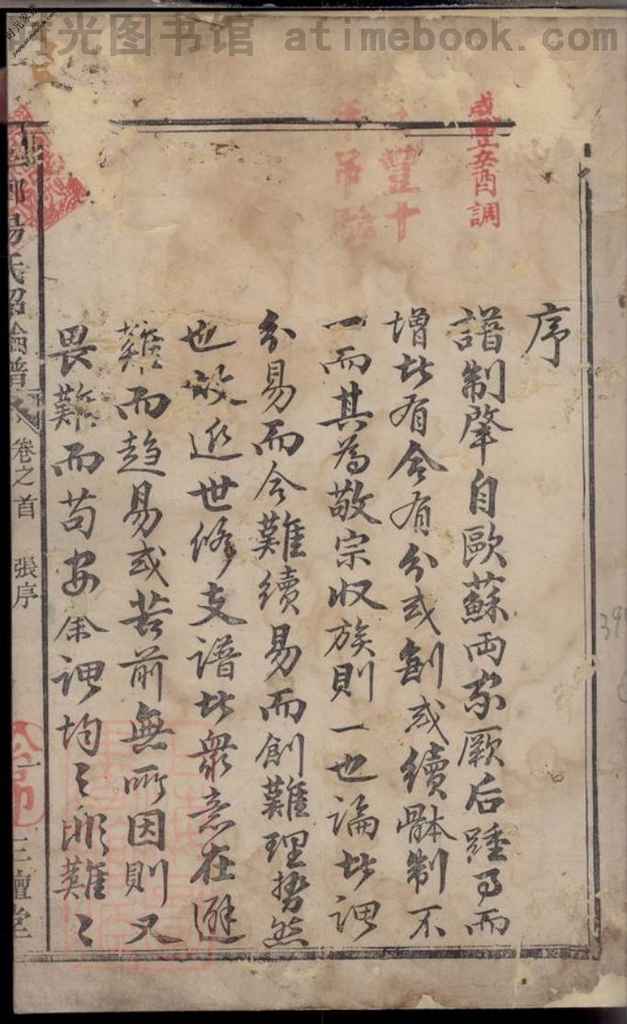 光图书馆 atimebook.com
咸豐辛酉調
豐十
序
譜制肇自歐蘇両家厥后踵事而
增此有合有分或創或續骵制不
一而其為敬宗収族則一也論者謂
分易而合難續易而創難理勢然
也故近世修支譜者衆意在避
難而趋易或苦前無所因則又
畏難而苟安余謂均之非難之
湯氏
譜
卷之首
張序
三讓堂